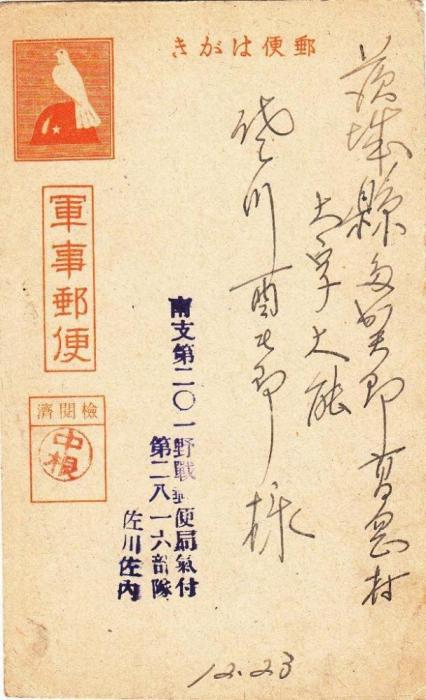 郵便はがき
茨城縣多賀郡高岡村
大字大能
川酉郎様
南支第二〇一野戰郵便局氣付
第二八一六部隊
佐川佐内
軍事郵便
檢閲濟
中根
12.23